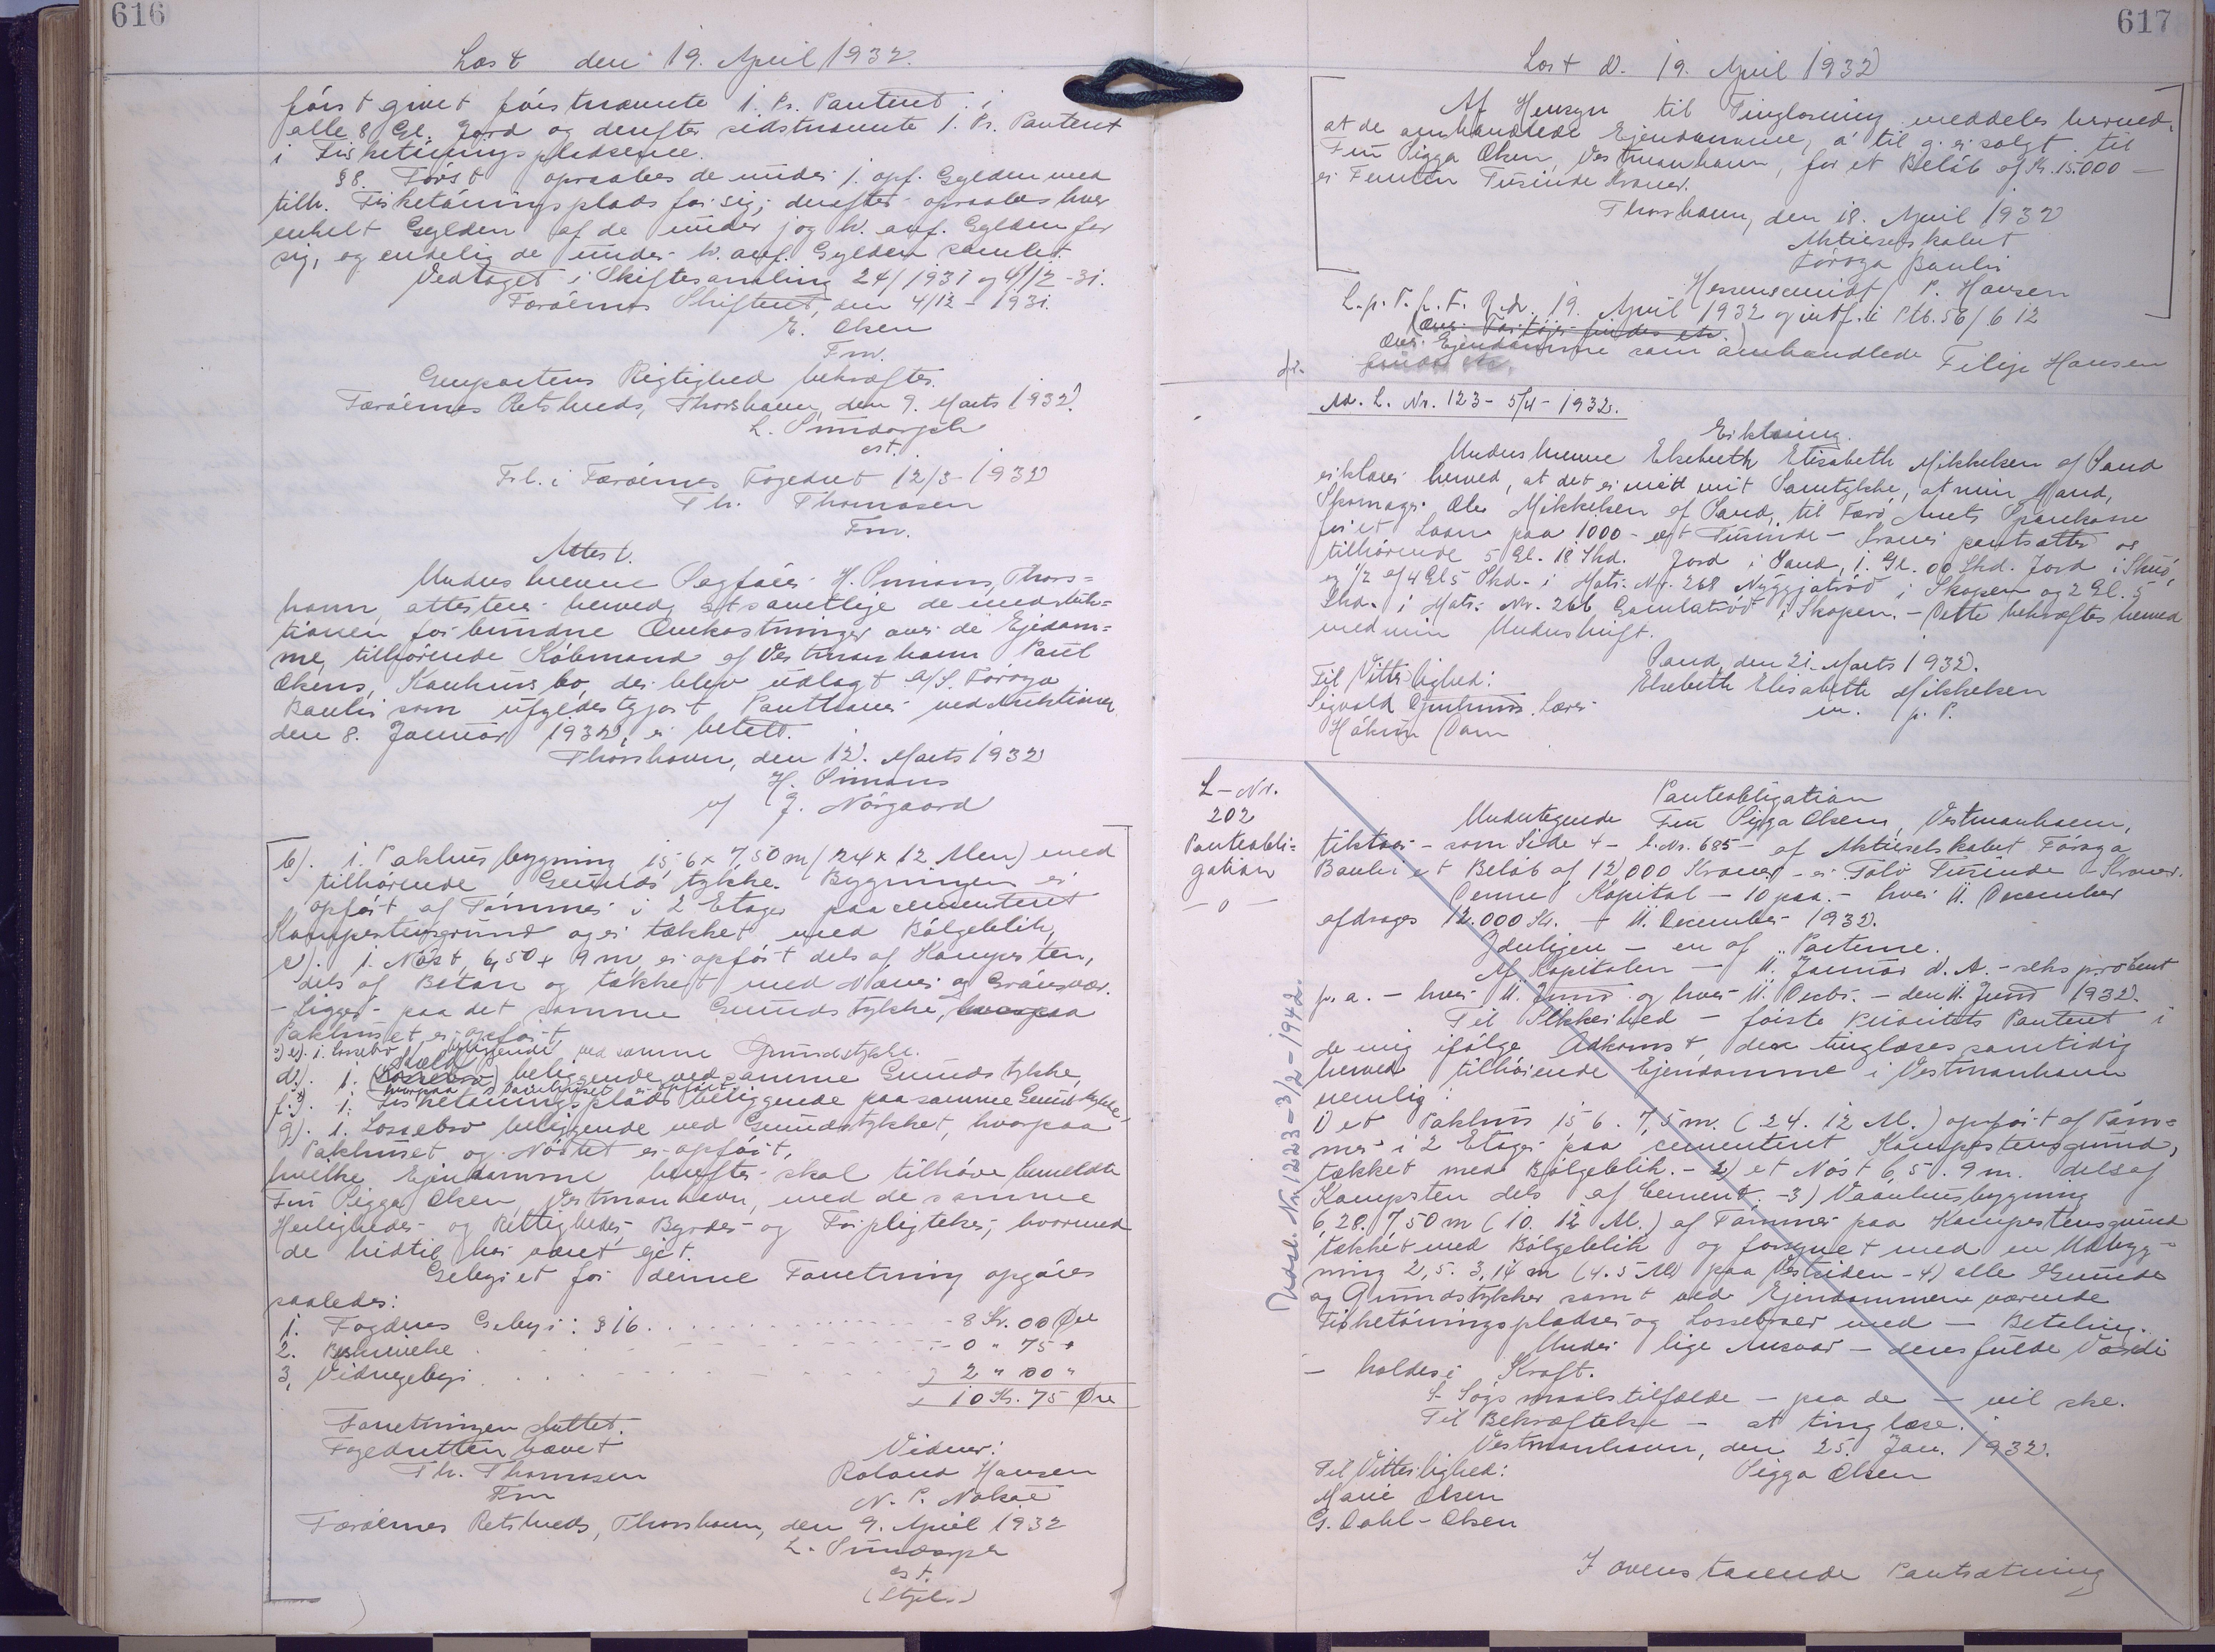 616
Læst den 19. April 1932.
først givet førstnævnte 1. Pr. Panteret i
alle 8 Gl. Jord og derefter sidstnævnte 1. Pr. Panteret
i Fisketørringspladsene.
§8. Først opraabes de under j. opf. Gylden med
tilh. Fisketørringsplads for sig; derefter opraabes hver
enkelt Gylden af de under j og k. anf. Gylden for
sig, og endelig de under k. anf. Gylden samlet.
Vedtaget i Skiftesamling 24/ 1931 og 4/12 - 31.
Færøernes Skifteret, den 4/12 - 1931.
E. Olsen
Fm.
Genpartens Rigtighed bekræftes.
Færøernes Retskreds, Thorshavn, den 9. Marts 1932.
L. Sundorph
cst.
Frl. i Færøernes Fogedret 12/3 - 1932
Th. Thomasen
Fm.
Attest.
Underskrevne Sagfører H. Simans, Thors=
havn, attesterer herved at samtlige de med Auk=
tionen forbundne Omkostninger over de Ejedom=
me, tilhørende Købmand af Vestmanhavn Paul
Olsens, Konkursbo, der blev udlagt A/S. Føroya
Banki som ufyldestgjort Panthaver ved Auktionen
den 8. Januar 1932, er betalt.
Thorshavn, den 12. Marts 1932
H. Simans
v/ J. Nørgaard
b). 1. Pakhusbygning 15.6 x 7,50 m (24 x 12 Alen) med
tilhørende Grundstykke. Bygningen er
opført af Tømmer i 2 Etager paa cementeret
Kampestensgrund og er tækket med Bølgeblik,
c). 1. Nøst, 6,50 x 9 m, er opført dels af Kampesten,
dels af Beton og tækket med Næver og Grønsvær.
- Ligger paa det samme Grundstykke, hvorpaa
Pakhuset er opført,
e). 1. Lossebro beliggende ved samme Grundstykke.
d). 1. (Lossebro) beliggende ved samme Grundstykke,
hvorpaa Vaanhuset er opført
f). 1. Fisketørringsplads beliggende paa samme Grundstykke,
g). 1. Lossebro beliggende ved Grundstykket, hvorpaa
Pakhuset og Nøstet er opført,
hvilke Ejendomme herefter skal tilhøre bemeldte
Fru Sigga Olsen, Vestmanhavn, med de samme
Herligheder og Rettigheder, Byrder og Forpligtelser, hvormed
de hidtil har været ejet.
Gebyret for denne Forretning opgøres
saaledes:
1. Fogdens Gebyr: § 16. 8 Kr. 00 Øre
2. Beskrivelse 0 " 75 "
3. Vidnegebyr 2 " 00 "
10 Kr. 75 Øre
Forretningen sluttet.
Fogedretten hævet
Th. Thomasen
Fm
Vidner:
Roland Hansen
N. P. Nolsøe
Færøernes Retskreds, Thorshavn, den 9. April 1932
L. Sundorph
cst.
(Stpl.)
617
Læst d. 19. April 1932
Af Hensyn til Tinglæsning meddeles herved,
at de omhandlede Ejendomme, a til g. er solgt til
Fru Sigga Olsen, Vestmanhavn, for et Beløb af Kr. 15.000 —
er Femten Tusinde Kroner.
Thorshavn, den 18. April 1932
Aktieselskabet
Føroya Banki
Hessenschmidt / P. Hansen
L. p. T. f. F. R. d. 19. April 1932 og indf. i Ptb. 56/612
(Over Fartøjer findes etc.)
Over Ejendomme som omhandlede
Filip Hansen
Ad. L. Nr. 123 - 5/4 - 1932.
Erklæring.
Underskrevne Elsebeth Elisabeth Mikkelsen af Sand
erklærer herved, at det er med mit Samtykke, at min Mand,
Skomager Ole Mikkelsen af Sand, til Færø Amts Sparekasse
for et Laan paa 1000 - et Tusinde - Kroner pantsætter os
tilhørende 5 Gl. 18 Skd. Jord i Sand, 1. Gl. 00 Skd. Jord i Skuø,
og 1/2 af 4 Gl 5 Skd. i Matr. Nr. 268 Nyggjatrøð i Skopen og 2 Gl. 5
Skd. i Matr. Nr. 266 Gamlatrøð i Skopen. - Dette bekræftes herved
med min Underskrift.
Sand, den 21. Marts 1932.
Elsebeth Elisabeth Mikkelsen
m. p. P.
Til Vitterlighed:
Sigvald Lærer
Hákun Dam
L-Nr.
202
Panteobli=
gation
— 0 —
Panteobligation
Undertegnede Fru Sigga Olsen, Vestmanhavn,
tilstaar - som Side 4 - L. Nr. 685 - af Aktieselskabet Føroya
Banki et Beløb af 12,000 Kroner - er Tolv Tusinde - Kroner.
Denne Kapital - 10 paa. - hver 11. December
afdrages 12.000 Kr. - 11. December 1932.
Iøvrigen - en af Parterne.
Af Kapitalen - 11. Januar d. A. - seks procent
p. a. - hver 11. Juni og hver 11. Decbr. - den 11. Juni 1932.
Til Sikkerhed - første Prioritets Panteret i
de mig ifølge Adkomst, der tinglæses samtidig
herved tilhørende Ejendomme i Vestmanhavn
nemlig:
1) et Pakhus 15 6. 7,5 m. (24. 12 Al.) opført af Tøm=
mer i 2 Etager paa cementeret Kampestensgrund,
tækket med Bølgeblik. - 2) et Nøst 6,5. 9 m. dels af
Kampsten dels af Cement. - 3) Vaanhusbygning
6,28. 7,50 m (10. 12 Al.) af Tømmer paa Kampestensgrund
tækket med Bølgeblik og forsynet med en Udbyg=
ning 2,5. 3,14 m (4. 5 Al) paa Vestsiden - 4) alle Grunde
og Grundstykker samt ved Ejendommene værende
Fisketørringspladser og Lossebroer med - Betaling.
Under lige Ansvar - deres fulde Værdi
- holdes i Kraft.
I Søgsmaalstilfælde - paa de - vil ske.
Til Bekræftelse - at tinglæse.
Vestmanhavn, den 25. Jan. 1932.
Sigga Olsen
Til Vitterlighed:
Marie Olsen
G. Dahl-Olsen
I ovenstaaende Pantsætning
Udsl. Nr. 1223 - 3/2 - 1942.